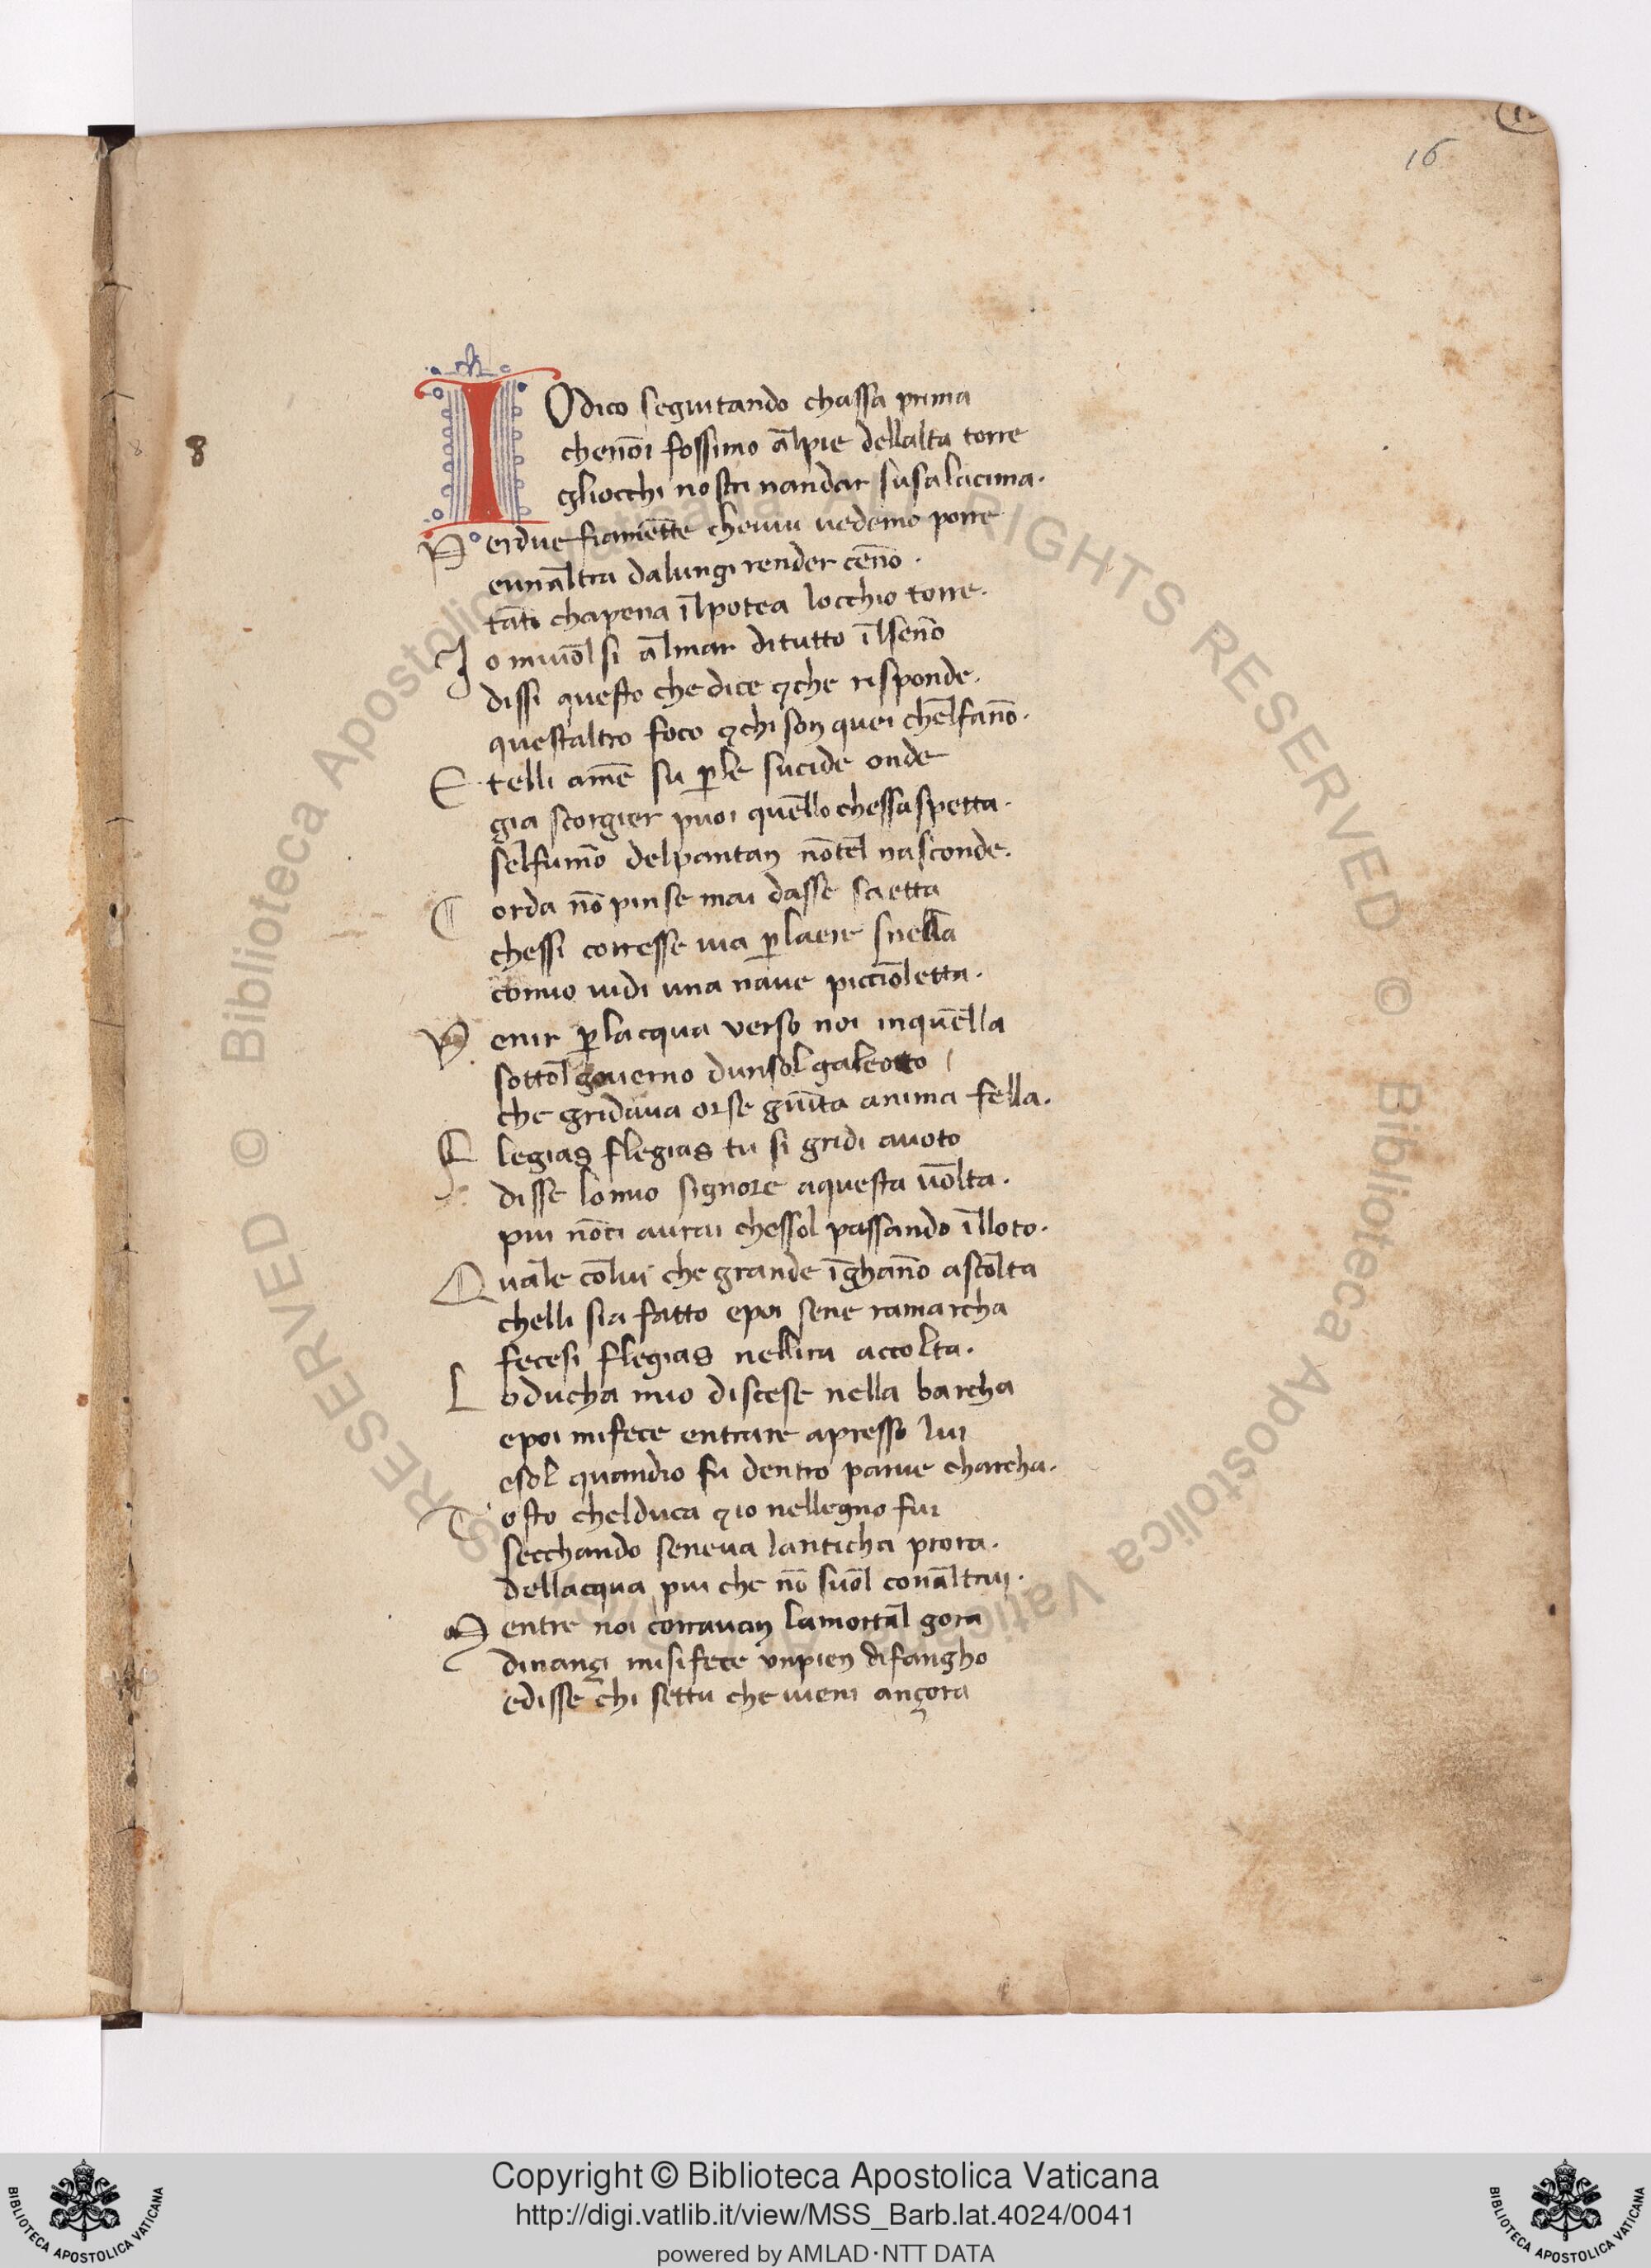 16
IOdico seguitando chassa prima
chenōi fossimo ālpie dellalta torre
gliocchi nostri nandar susalacima.
8
Perdue fiamēte cheiui uedemo porre
eunāltra dalungi render cēno.
tāto chapena īlpotea locchio torre.
Io miuōlsi ālmar ditutto īlsēno
dissi questo che dice ⁊che risponde.
questaltro foco ⁊chi son quei chelfāno.
Etelli amē su ꝑle sucide onde
gia scorgier puoi quello chessaspetta.
selfumō delpantan nōtel nasconde.
Corda nō pinse mai dasse saetta
chessi corresse uia ꝑlaere snella
comio uidi una naue picciōletta.
Venir ꝑlacqua verso noi inquella
sottol gouerno dunsol galeotto
che gridaua orse giūta anima fella.
Flegias flegias tu si gridi auoto
disse lomio signore aquesta uōlta.
piu nōci aurai chessol passando īlloto.
Quāle cōlui che grande īghāno ascolta
chelli sia fatto epoi sene ramarcha
fecesi flegias nellira accolta.
Loducha mio discese nella barcha
epoi mifece entrare apresso lui
esol quandio fu dentro parue charcha.
Tosto chelduca ⁊io nellegno fui
secchando seneua lanticha prora.
dellacqua piu che nō suōl conāltrui.
Mentre noi corrauan lamortāl gora
dinançi misifece vnpien difangho
edisse chi settu che uieni ançora
Copyright © Biblioteca Apostolica Vaticana
http://digi.vatlib.it/view/MSS_Barb.lat.4024/0041
powered by AMLAD·NTT DATA
BIBLIOTECA APOSTOLICA VATICANA
BIBLIOTECA APOSTOLICA VATICANA